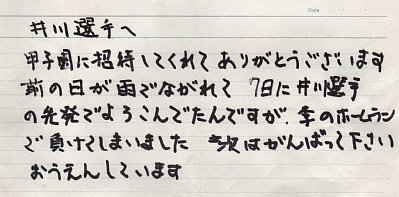 Date
井川選手へ
甲子園に招待してくれて ありがとうございます
前の日が雨でながれて 7日に井川選手
の先発でよろこんでたんですが、李のホームラン
で負けてしまいました 次はがんばって下さい
おうえんしています